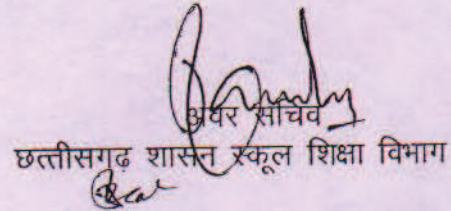 अवर सचिव
छत्तीसगढ़ शासन स्कूल शिक्षा विभाग